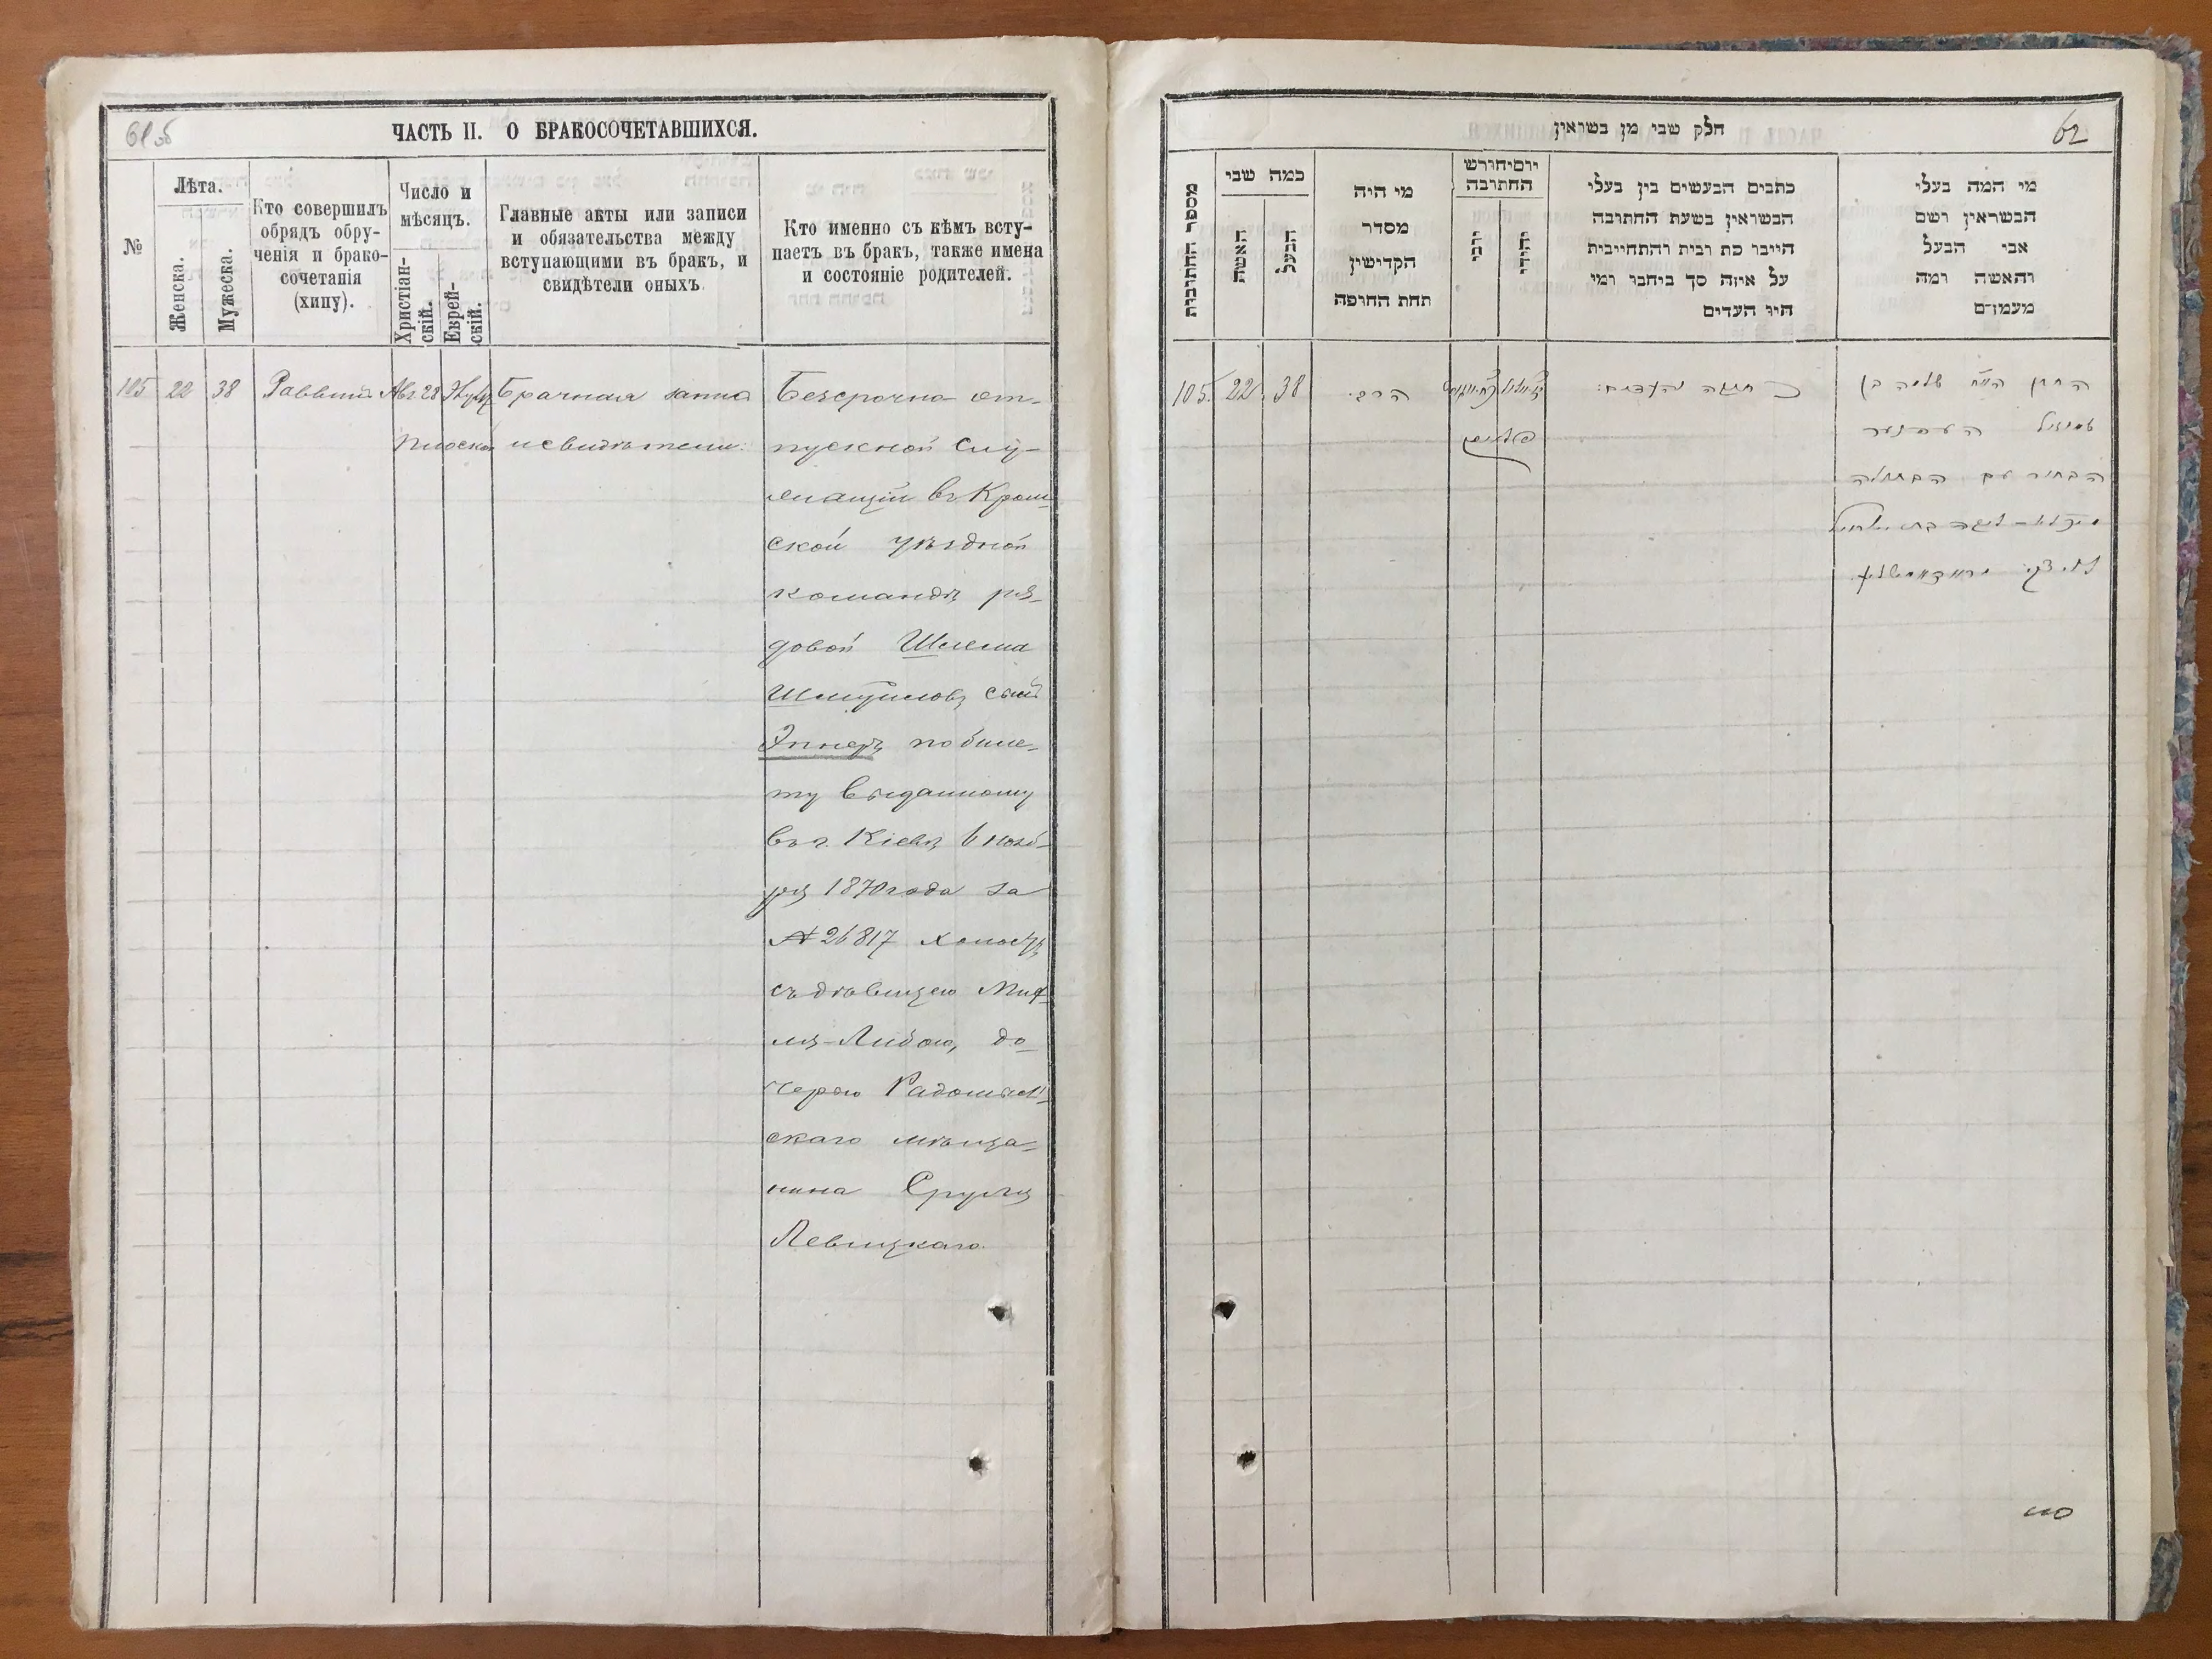 61 об
ЧАСТЬ II. О БРАКОСОЧЕТАВШИХСЯ.
№
Лѣта.
Женска.
Мужеска.
Кто совершилъ
обрядъ обру-
ченія и брако-
сочетанія
(хипу).
Число и
мѣсяцъ.
Христіан-
скій.
Еврей-
скій.
Главные акты или записи
и обязательства между
вступающими въ бракъ, и
свидѣтели оныхъ
Кто именно съ кѣмъ всту-
паетъ въ бракъ, также имена
и состояніе родителей.
105 22 38 Раввинъ Авг. 28 Брачная запис
и свидѣтели:
Безсрочно от-
пускной слу-
жащій въ
ской уѣздной
командѣ ря-
довой Шлема
Шмуйловъ сынъ
Эпнеръ по биле-
ту выданному
въ г. Кіевѣ 6 нояб-
ря 1870 года за
№ 26817 холостъ
съ дѣвицею
ля-Либою, до-
черью Радомысль-
скаго мѣща-
нина Сруля
Левицкаго.
62
חלק שבי מן בשראין
מספר החתונות
כמה שבי
האשה
הבעל
מי היה
מסדר
הקדישין
תחת החופה
יום יחורש
החתובה
יהודי
כתבים הבעשים בין בעלי
הבשראין בשעת החתובה
הייבו כת רבית והתחייבית
על איזה סך ביחבו ומי
היו העדים
מי המה בעלי
הבשראין ושם
אבי הבעל
והאשה ומה
מעמדם
105. 22 38 הרב.
החתן שלמה בן
שמואל
הבחור עם הבתולה